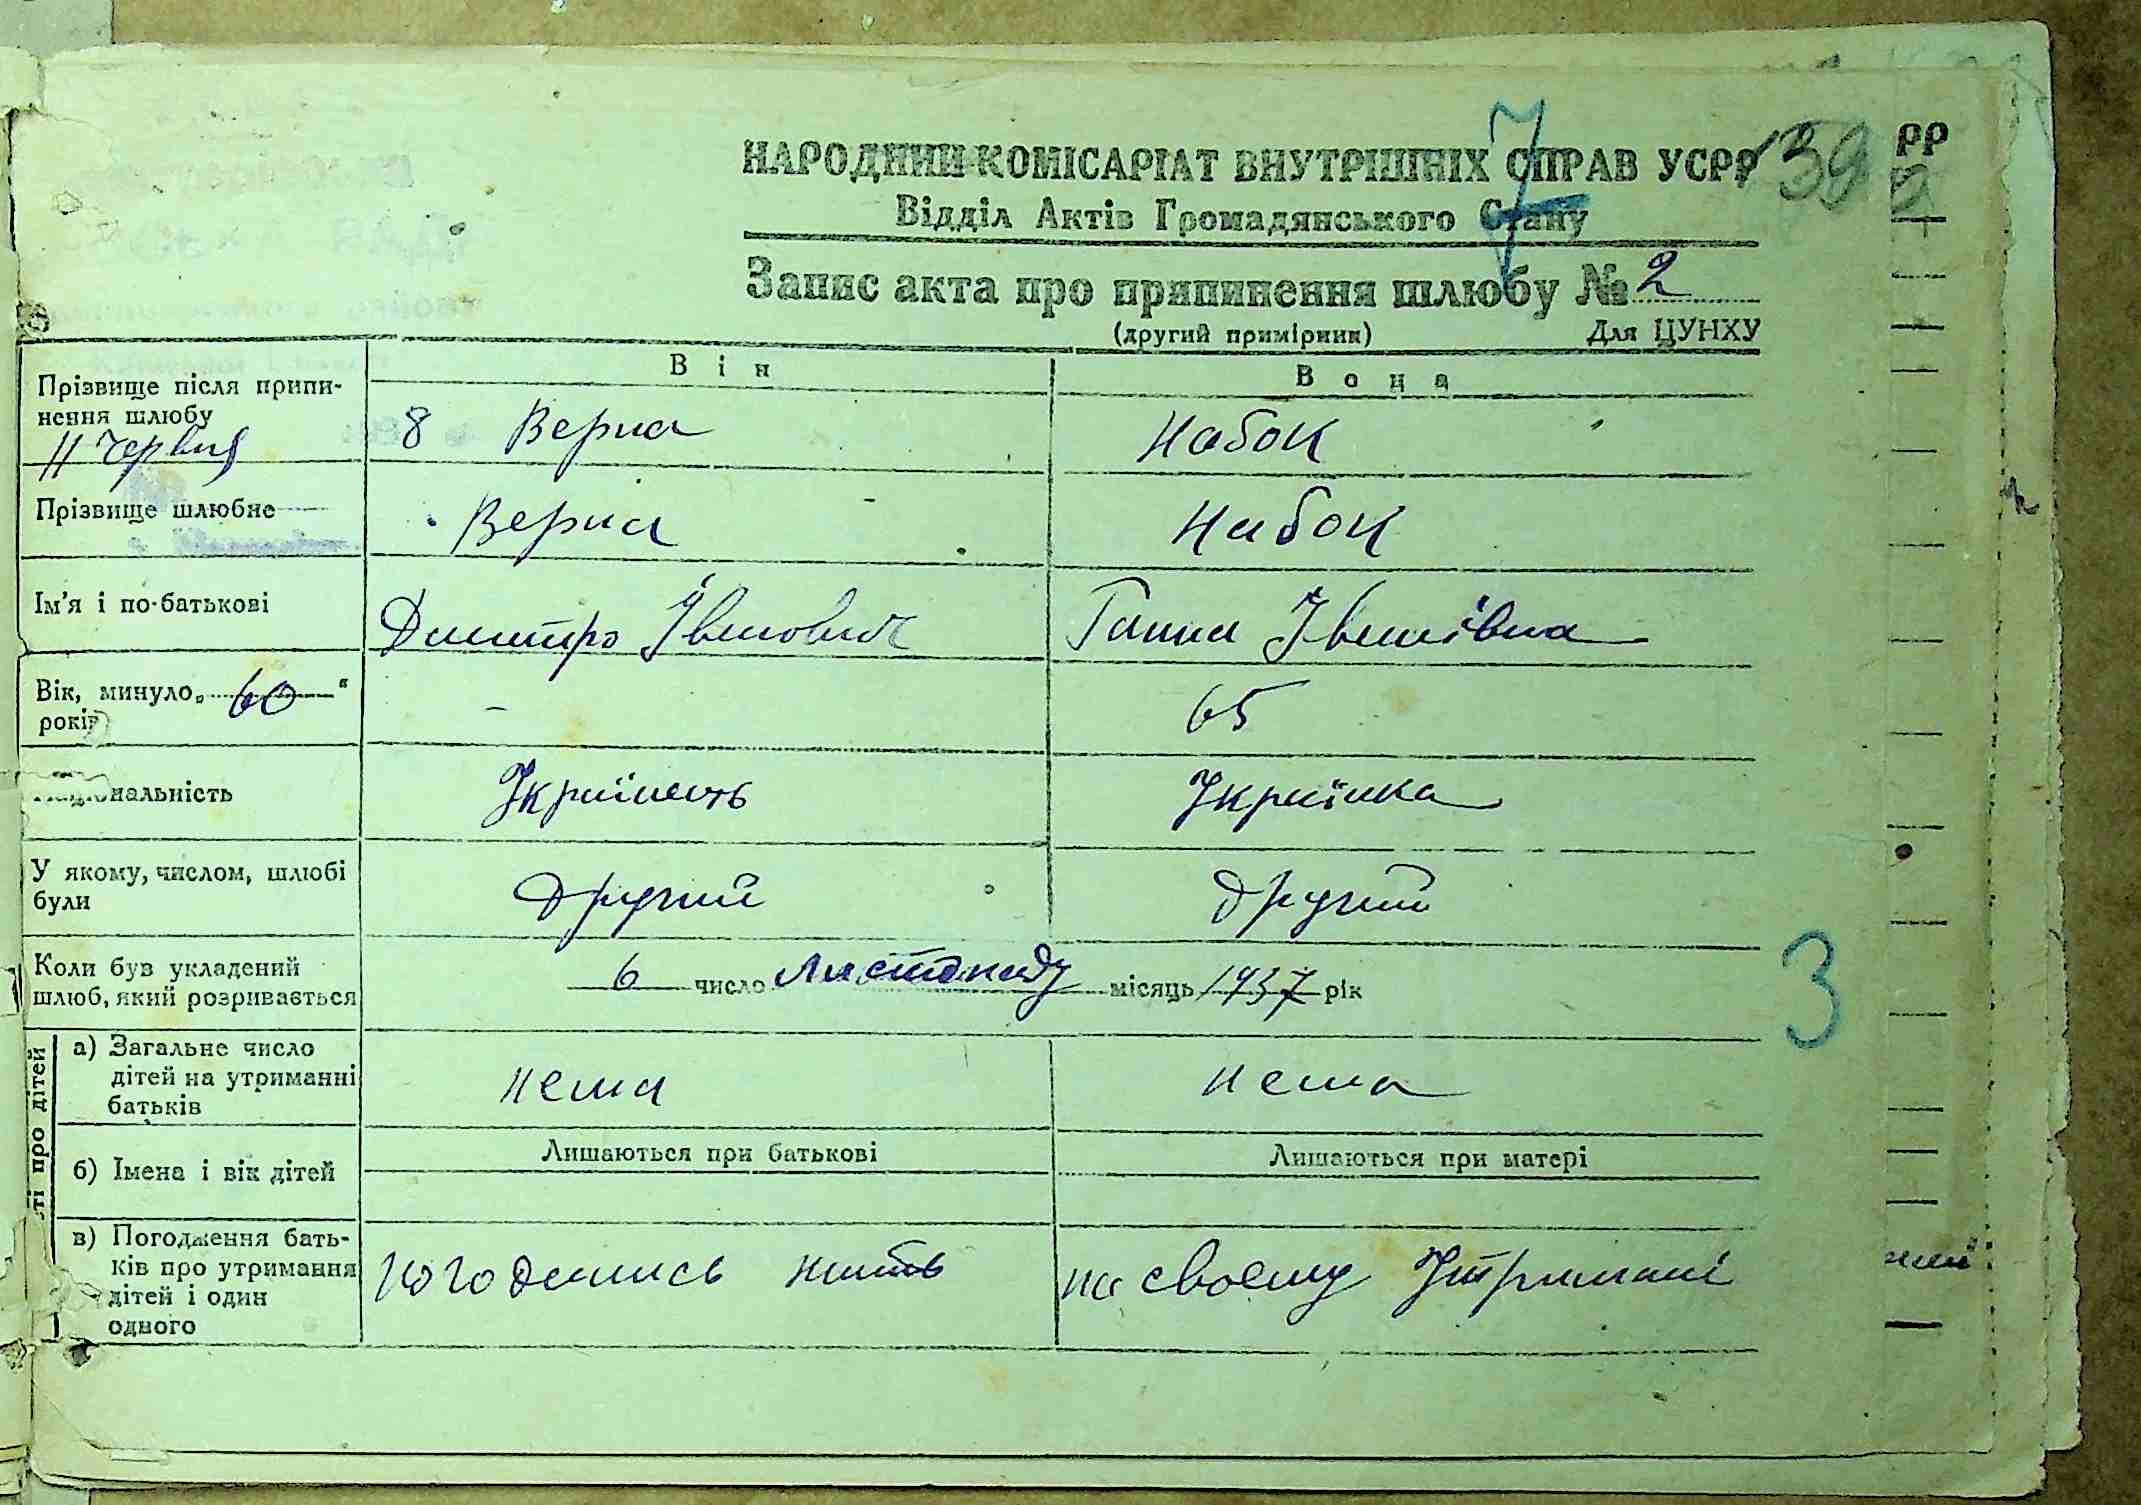 НАРОДНИЙ КОМІСАРІАТ ВНУТРІШНІХ СПРАВ УСРР
7
39
РР
Відділ Актів Громадянського Стану
Запис акта про припинення шлюбу № 2
(другий примірник) Для ЦУНХУ
Він Вона
Прізвище після припи-
нення шлюбу
11 червня
8 Верна Набок
Прізвище шлюбне Верна Набок
Ім'я і по-батькові Дмитро Іванович Ганна Іванівна
Вік, минуло „60“
років
65
Національність Українець Українка
У якому, числом, шлюбі
були
другий другий
Коли був укладений
шлюб, який розривається
6 число Листопаду місяць 1937 рік
3
ті про дітей
а) Загальне число
дітей на утриманні
батьків
нема нема
Лишаються при батькові Лишаються при матері
б) Імена і вік дітей
в) Погодження бать-
ків про утримання
дітей і один
одного
погодились жить на своему утримані